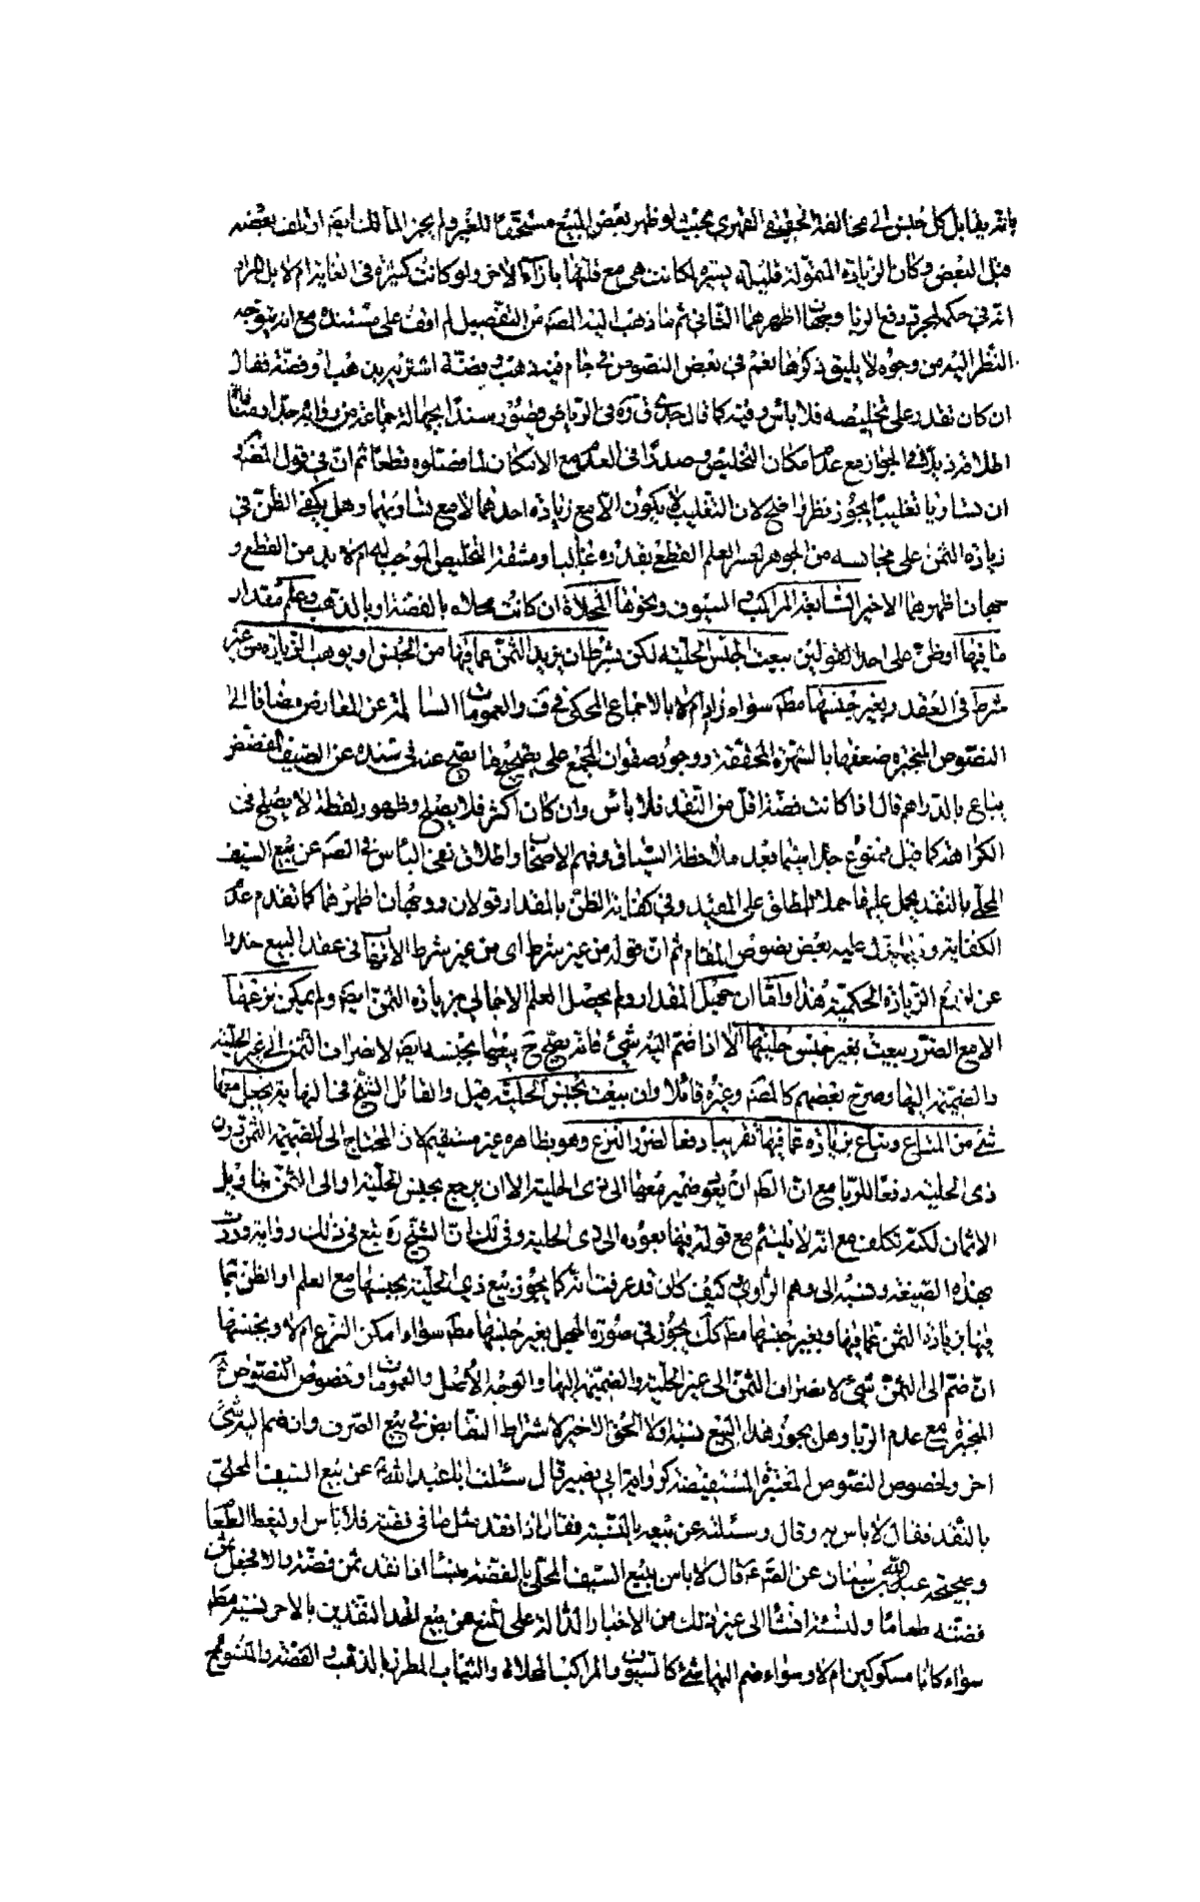 بانه يقابل كل جنس الى مخالفة الحقيقي القهري بحيث لو ظهر بعض المبيع مستحقا للغير ولم يجز المالك ايضا او تلف بعضه
قبل القبض وكان الزيادة المتمولة قليلة يسيرة لكانت هي مع قلتها بازاء الاخر ولو كانت كثيرة في الغاية ام لا بل المراد
انه في حكمه لمجرد دفع الربا وجهان اظهرهما الثاني ثم ما ذهب اليه المصه من التفصيل لم اقف على مستنده مع انه يتوجه
النظر اليه من وجوه لا يليق ذكرها نعم في بعض النصوص في جام فيه ذهب وفضة اشتريه بذهب او فضة فقال
ان كان تقدر على تخليصه فلا باس وفيه كما قال جدي قدره في الرياض قصور سندا بجهالة جماعة من رواته جدا ومتنا فان
اطلاقه يدل الجواز مع عدم امكان التخليص وصدا في العدم مع الامكان لما فصلوه قطعا ثم ان في قول المصنف
ان تساويا تغليبا يجوز نظر واضح لان التغليب لا يكون الا مع زيادة احدهما لا مع تساويهما وهل يكفي الظن في
زيادة الثمن على مجانسه من الجوهر لعسر العلم القطع بقدره غالبا ومشقة التخليص الموجب له ام لابد من القطع و
جهان اظهرهما الاخير السابعة المراكب و السيوف ونحوها المحلاة ان كانت محلاه بالفضة او بالذهب وعلم مقدار
ما فيها او ظن على احد القولين بيعت بالجنس الحلية لكن بشرط ان يزيد الثمن عما فيها من الجنس او يوهب الزيادة من غير
شرط في العقد وبغير جنسها مطلقا سواء زاد ام لا بالاجماع المحكي في ف والعمومات السالمة عن المعارض مضافا الى
النصوص المنجبرة ضعفها بالشهرة المحققة ووجود صفوان المجمع على تصحيح ما يصح عنه في سنده عن السيف المفضض
يباع بالدراهم قال اذا كانت فضة اقل من النقد فلا باس وان كان اكثر فلا يصلح وظهور لفظة لا يصلح في
الكراهة كما قيل ممنوع جدا سيما بعد ملاحظة السياق وفهم الاصحاب واطلاق نفي الباس في الصه عن بيع السيف
المحلى بالنقد يحمل عليها حملا للمطلق على المقيد وفي كفاية الظن بالمقدار قولان ووجهان اظهرهما كما تقدم عدم
الكفاية وربما يدل عليه بعض نصوص المقام ثم ان قوله من غير شرط اى من غير شرط الاتهاب في عقد البيع حذرا
عن لزوم الزيادة الحكمية هذا واما ان جهل المقدار ولم يحصل العلم الاجمالي بزيادة الثمن ايضا ولم يمكن نزعها
الا مع الضرر بيعت بغير جنس حليتها الا اذا ضم اليه شيء فانه يصح ح بيعها بجنسه ايضا لانصراف الثمن الى غير الحلية
والضميمة اليها وصرح بعضهم كالمصه وغيره قائلا وان بيعت بجنس الحلية قيل والقائل الشيخ في النهاية يجعل معها
شيء من المتاع وتباع بزيادة عما فيها تقريبا دفعا لضرر النزع وهو بظاهره غير مستقيم لان المحتاج الى الضميمة الثمن دون
ذى الحلية دفعا للربا مع ان الظه ان يعود ضمير معها الى ذى الحلية الا ان يرجع بجنس الحلية او الى الثمن بتاويل
الاثمان لكنه تكلف مع انه لا يلتئم مع قوله فيها بعوده الى ذى الحلية وفي لك ان الشيخ ره تبع في ذلك رواية وردت
بهذه الصيغة ونسبه الى وهم الراوي وكيف كان قد عرفت انه كما يجوز بيع ذي الحلية بجنسها مع العلم او الظن بما
فيها بزيادة الثمن عما فيها وبغير جنسها مطلقا كك يجوز في صورة الجهل بغير جنسها مطلقا سواء امكن النزع ام لا وبجنسها
ان ضم الى الثمن شيء لانصراف الثمن الى غير الحلية والضميمة اليها والوجه الاصل والعمومات وخصوص النصوص
المنجبرة مع عدم الربا وهل يجوز هذا البيع نسيئة ولا الحق الاخير لاشتراط التقابض في بيع الصرف وان ضم اليه شيء
اخر ولخصوص النصوص المعتبرة المستفيضة كرواية ابي بصير قال سئلت ابا عبد الله ع عن بيع السيف المحلى
بالنقد فقال لا باس به وقال وسئلته عن بيعه بالنسية فقال اذا نقد مثل ما في فضته فلا باس او ليعط الطعام
وصحيحة عبد الله بن سنان عن الصه ع قال لا باس ببيع السيف المحلى بالفضة بنسا اذا نقد ثمن فضته والا فاجعل ثمن
فضته طعاما ولينسئه انشا الى غير ذلك من الاخبار الدالة على المنع من بيع احد النقدين بالاخر نسية مطلقا
سواء كانا مسكوكين ام لا وسواء ضم اليهما شيء كالسيوف والمراكب المحلاة والثياب المطرزة بالذهب و الفضة والمنسوج